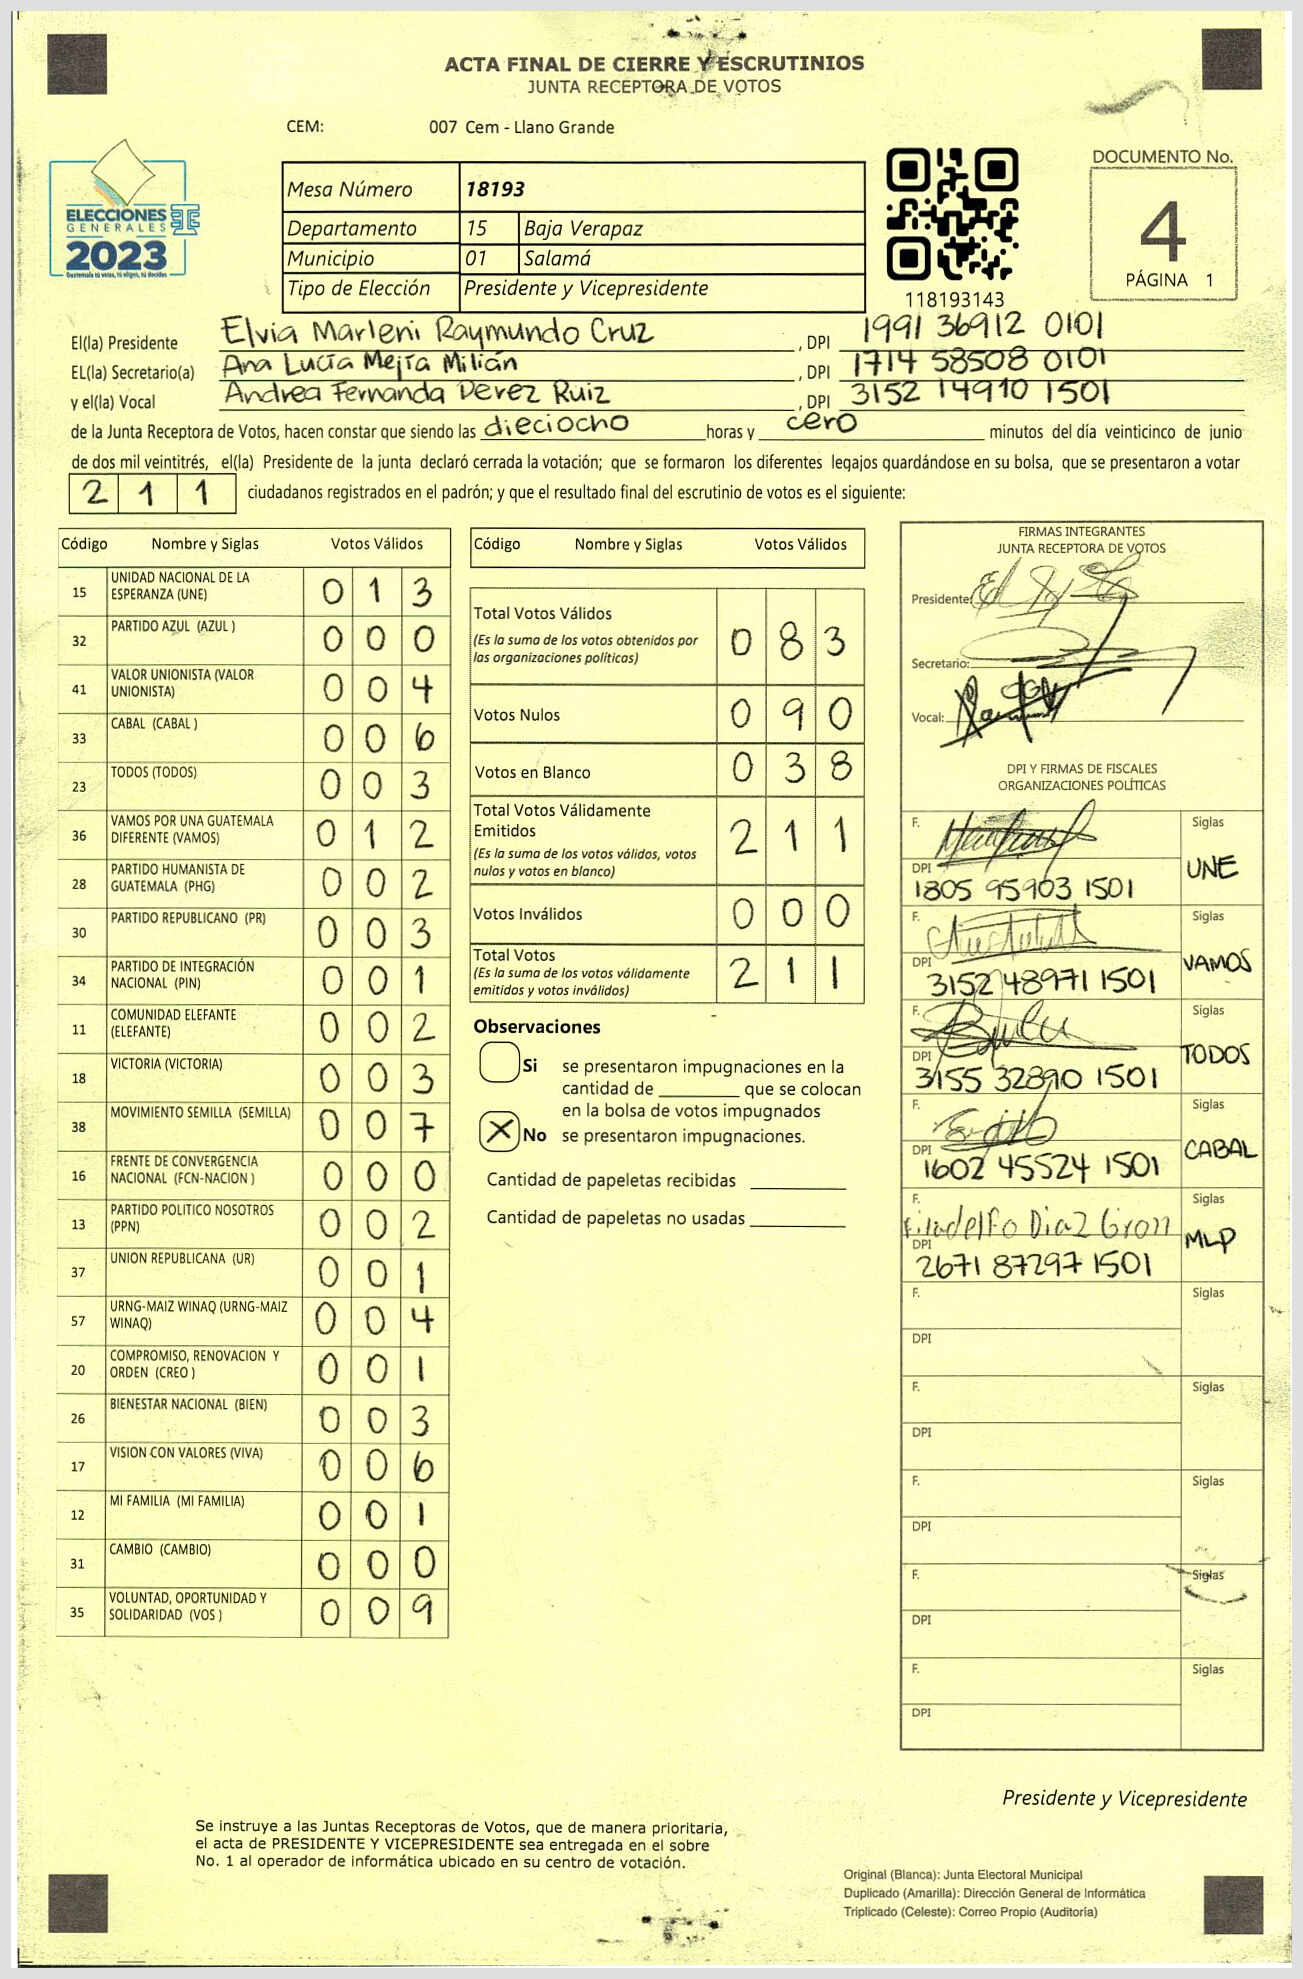 ACTA FINAL DE CIERRE Y ESCRUTINIOS
JUNTA RECEPTORA DE VOTOS
CEM: 007 Cem - Llano Grande
ELECCIONES
GENERALES
2023
Guatemala tú votas, tú eliges, tú decides
Mesa Número 18193
Departamento 15 Baja Verapaz
Municipio 01 Salamá
Tipo de Elección Presidente y Vicepresidente
118193143
DOCUMENTO No.
4
PÁGINA 1
El(la) Presidente Elvia Marleni Raymundo Cruz , DPI 1991 36912 0101
EL(la) Secretario(a) Ana Lucía Mejía Milián , DPI 1714 58508 0101
y el(la) Vocal Andrea Fernanda Perez Ruiz , DPI 3152 14910 1501
de la Junta Receptora de Votos, hacen constar que siendo las dieciocho horas y cero minutos del día veinticinco de junio
de dos mil veintitrés, el(la) Presidente de la junta declaró cerrada la votación; que se formaron los diferentes legajos guardándose en su bolsa, que se presentaron a votar
2 1 1 ciudadanos registrados en el padrón; y que el resultado final del escrutinio de votos es el siguiente:
Código Nombre y Siglas Votos Válidos
15 UNIDAD NACIONAL DE LA ESPERANZA (UNE) 0 1 3
32 PARTIDO AZUL (AZUL ) 0 0 0
41 VALOR UNIONISTA (VALOR UNIONISTA) 0 0 4
33 CABAL (CABAL ) 0 0 6
23 TODOS (TODOS) 0 0 3
36 VAMOS POR UNA GUATEMALA DIFERENTE (VAMOS) 0 1 2
28 PARTIDO HUMANISTA DE GUATEMALA (PHG) 0 0 2
30 PARTIDO REPUBLICANO (PR) 0 0 3
34 PARTIDO DE INTEGRACIÓN NACIONAL (PIN) 0 0 1
11 COMUNIDAD ELEFANTE (ELEFANTE) 0 0 2
18 VICTORIA (VICTORIA) 0 0 3
38 MOVIMIENTO SEMILLA (SEMILLA) 0 0 7
16 FRENTE DE CONVERGENCIA NACIONAL (FCN-NACION ) 0 0 0
13 PARTIDO POLITICO NOSOTROS (PPN) 0 0 2
37 UNION REPUBLICANA (UR) 0 0 1
57 URNG-MAIZ WINAQ (URNG-MAIZ WINAQ) 0 0 4
20 COMPROMISO, RENOVACION Y ORDEN (CREO ) 0 0 1
26 BIENESTAR NACIONAL (BIEN) 0 0 3
17 VISION CON VALORES (VIVA) 0 0 6
12 MI FAMILIA (MI FAMILIA) 0 0 1
31 CAMBIO (CAMBIO) 0 0 0
35 VOLUNTAD, OPORTUNIDAD Y SOLIDARIDAD (VOS ) 0 0 9
Código Nombre y Siglas Votos Válidos
Total Votos Válidos 0 8 3
(Es la suma de los votos obtenidos por
las organizaciones políticas)
Votos Nulos 0 9 0
Votos en Blanco 0 3 8
Total Votos Válidamente
Emitidos 2 1 1
(Es la suma de los votos válidos, votos
nulos y votos en blanco)
Votos Inválidos 0 0 0
Total Votos 2 1 1
(Es la suma de los votos válidamente
emitidos y votos inválidos)
Observaciones
Si se presentaron impugnaciones en la
cantidad de ________ que se colocan
en la bolsa de votos impugnados
X No se presentaron impugnaciones.
Cantidad de papeletas recibidas
Cantidad de papeletas no usadas
FIRMAS INTEGRANTES
JUNTA RECEPTORA DE VOTOS
Presidente:
Secretario:
Vocal:
DPI Y FIRMAS DE FISCALES
ORGANIZACIONES POLÍTICAS
F. Siglas
DPI 1805 95903 1501 UNE
F. Siglas
DPI 3152 48971 1501 VAMOS
F. Siglas
DPI 3155 32890 1501 TODOS
F. Siglas
DPI 1602 45524 1501 CABAL
F. Filadelfo Diaz Giron Siglas
DPI 2671 87297 1501 MLP
F. Siglas
DPI
F. Siglas
DPI
F. Siglas
DPI
F. Siglas
DPI
F. Siglas
DPI
Presidente y Vicepresidente
Se instruye a las Juntas Receptoras de Votos, que de manera prioritaria,
el acta de PRESIDENTE Y VICEPRESIDENTE sea entregada en el sobre
No. 1 al operador de informática ubicado en su centro de votación.
Original (Blanca): Junta Electoral Municipal
Duplicado (Amarilla): Dirección General de Informática
Triplicado (Celeste): Correo Propio (Auditoría)